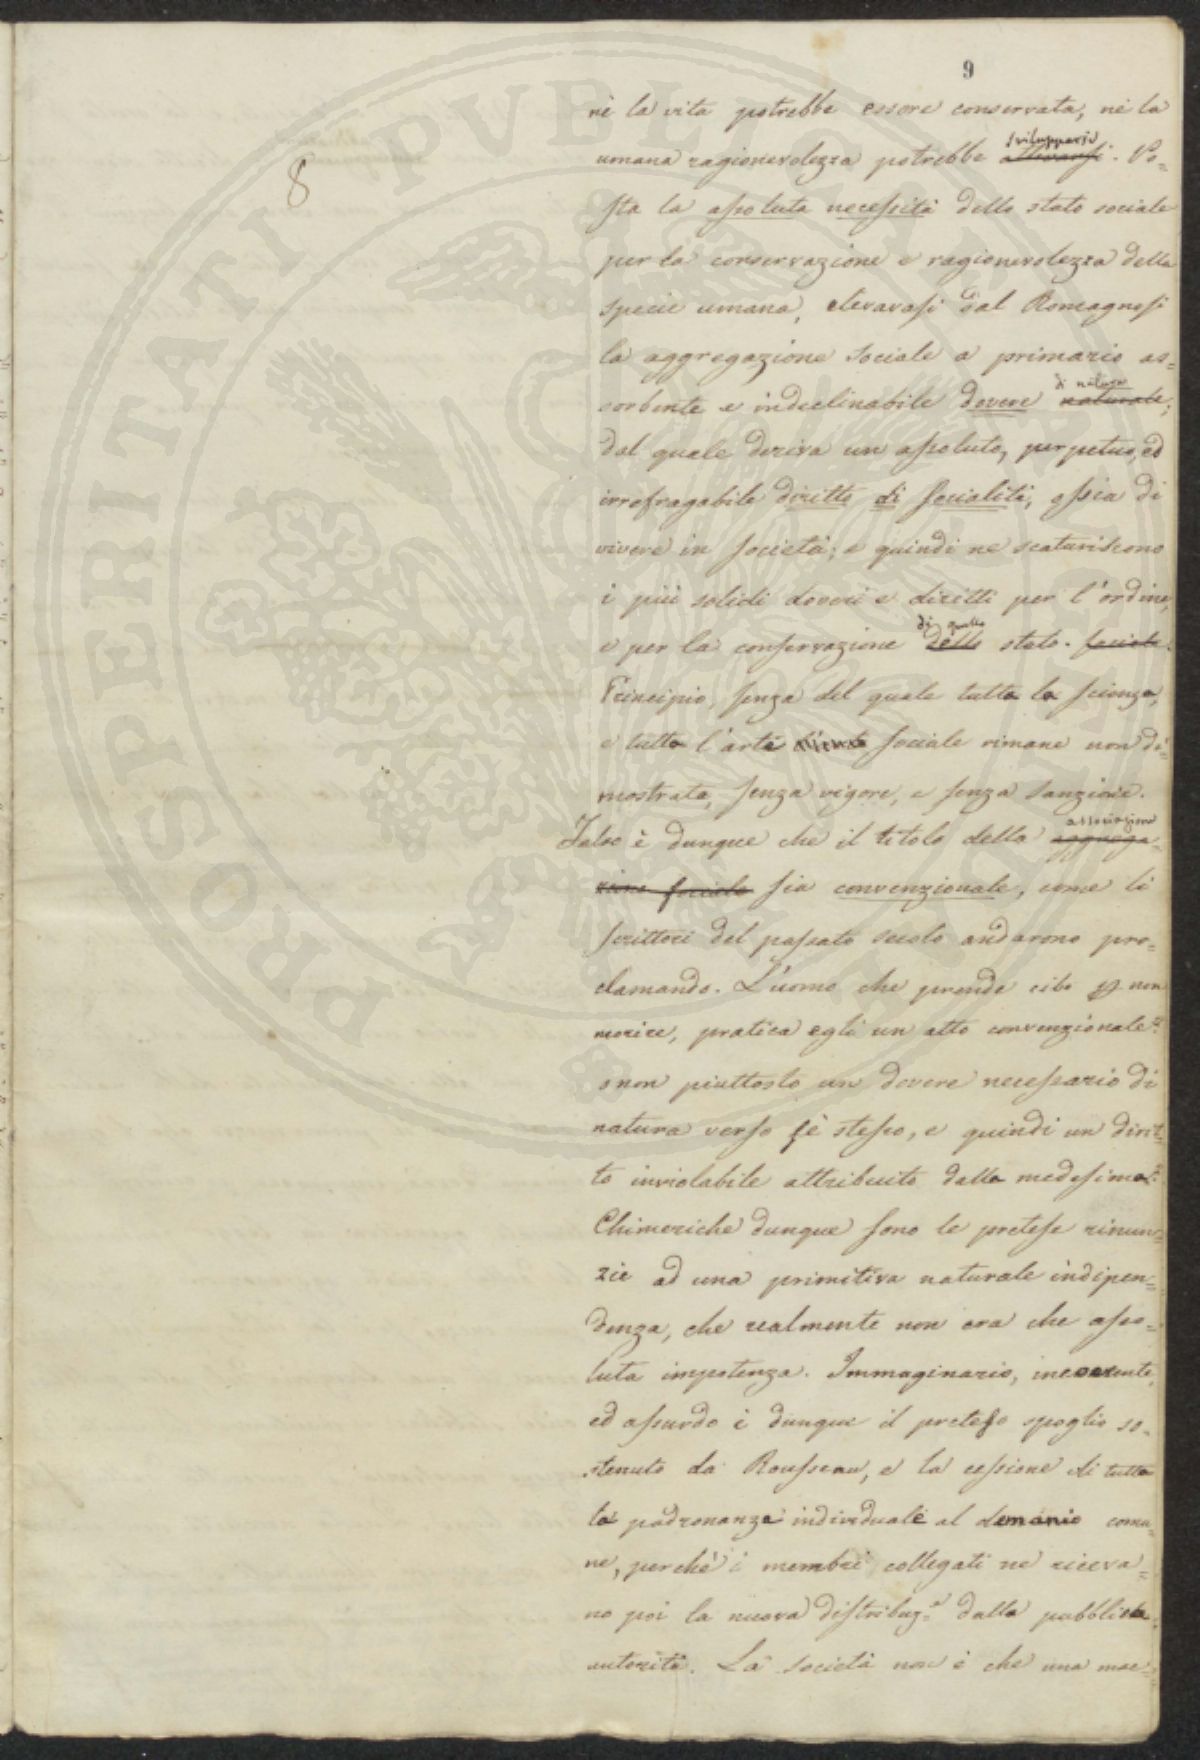 9
8
nè la vita potrebbe essere conservata, nè la
umana ragionevolezza potrebbe svilupparsi. Po=
sta la assoluta necessità dello stato sociale
per la conservazione e ragionevolezza della
specie umana, elevavasi dal Romagnosi
la aggregazione sociale a primario as=
sorbente e indeclinabile dovere di natura naturale;
dal quale deriva un assoluto, perpetuo, ed
irrefragabile diritto di socialità, ossia di
vivere in società; e quindi ne scaturiscono
i più solidi doveri e diritti per l'ordine,
e per la conservazione di quello dello stato. sociale.
Principio, senza del quale tutta la scienza,
e tutta l'arte sociale rimane non di=
mostrata, senza vigore, e senza sanzione.
Falso è dunque che il titolo della associazione aggrega=
zione sociale sia convenzionale, come li
scrittori del passato secolo andarono pro=
clamando. L'uomo che prende cibo p non
morire, pratica egli un atto convenzionale?
o non piuttosto un dovere necessario di
natura verso sè stesso, e quindi un dirit=
to inviolabile attribuito dalla medesima?
Chimeriche dunque sono le pretese rinun=
zie ad una primitiva naturale indipen=
denza, che realmente non era che asso=
luta impotenza. Immaginario, incoerente,
ed assurdo è dunque il preteso spoglio so=
stenuto da Rousseau, e la cessione di tutta
la padronanza individuale al demanio comu=
ne, perchè i membri collegati ne riceva=
no poi la nuova distribuz.e dalla pubblica
autorità. La società non è che una mac=